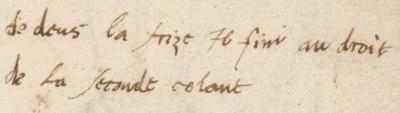 de deus la frize Ib fini au droit
de la seconde colant